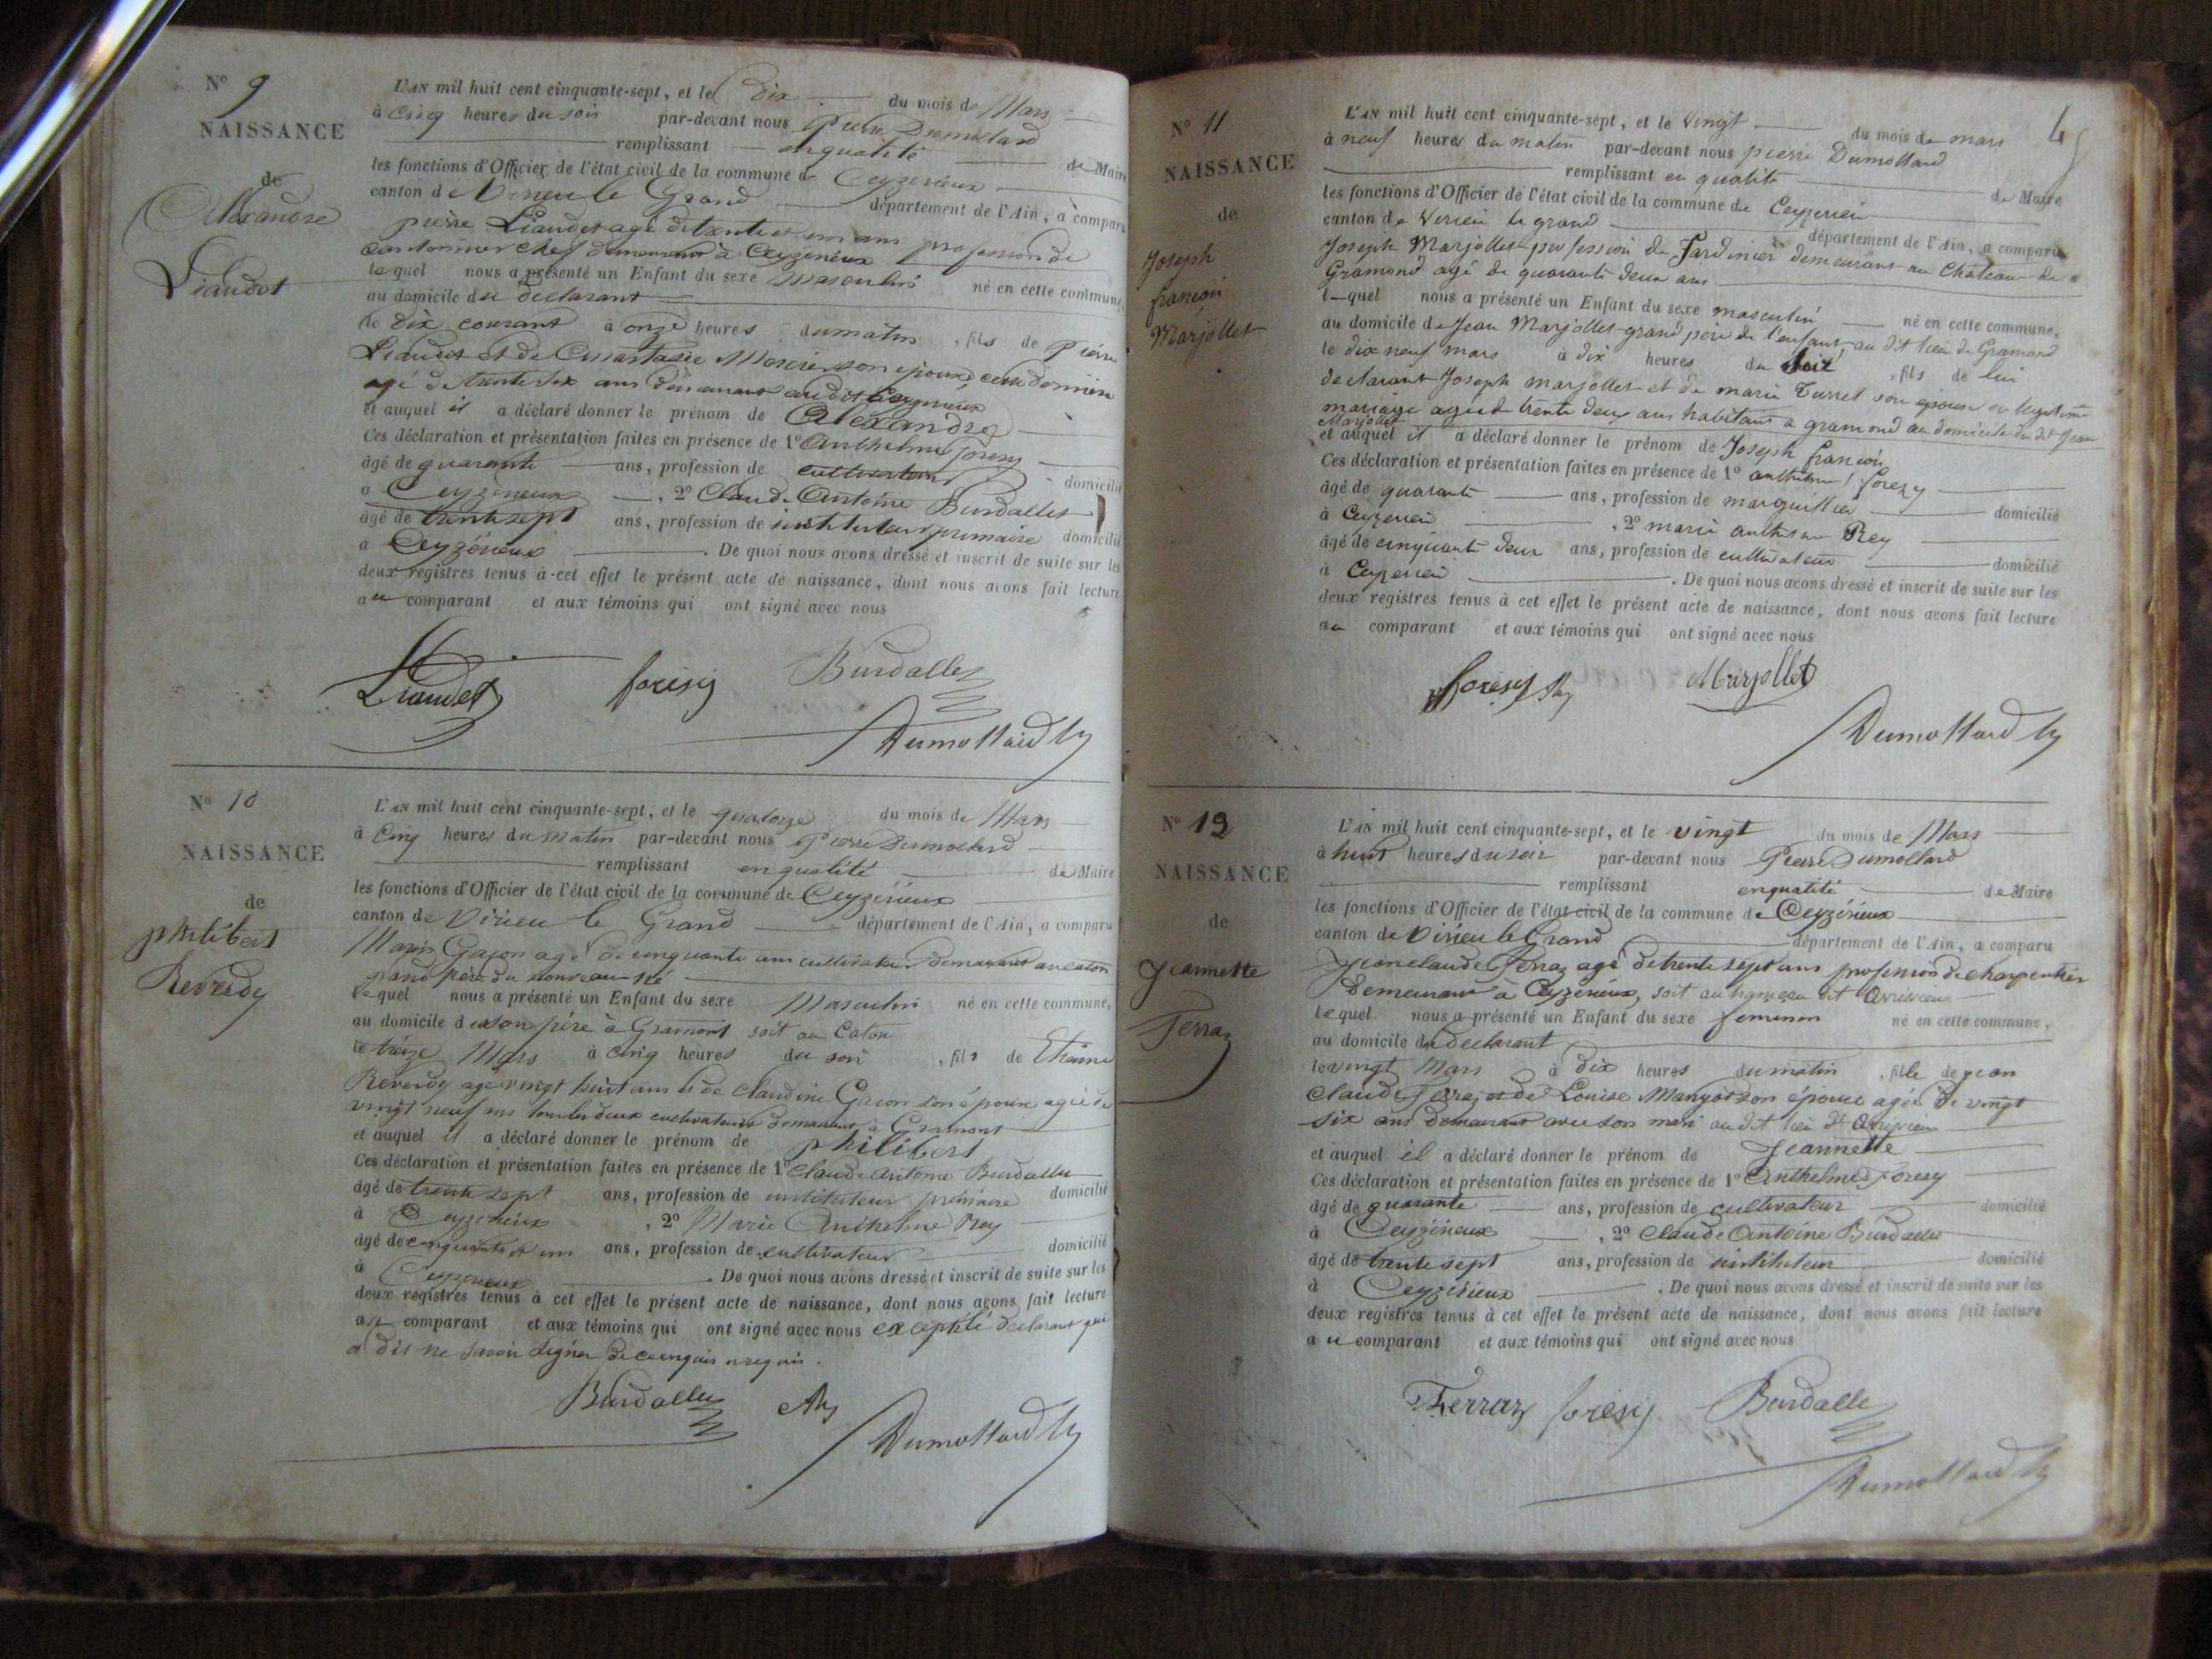 N° 9
NAISSANCE
de
Alexandre
Liaudet
L'AN mil huit cent cinquante-sept, et le Dix du mois de Mars
à Cinq heures du soir par-devant nous Pierre Dumollard
remplissant en qualité de Maire
les fonctions d'Officier de l'état civil de la commune de Ceyzerieux
canton de Virieu le Grand département de l'Ain, à comparu
pierre Liaudet agé de trente et un ans profession de
Cantonnier Chef demeurant à Ceyzerieux
lequel nous a présenté un Enfant du sexe Masculin né en cette commune,
au domicile du declarant
le Dix courant à onze heures du matin, fils de Pierre
Liaudet et de Anastasie Mercier son épouse, cette dernière
agé de trente six ans demeurant audit Ceyzerieux
et auquel il a déclaré donner le prénom de Alexandre
Ces déclaration et présentation faites en présence de 1° Anthelme foresy
âgé de quarante ans, profession de cultivateur domicilié
à Ceyzerieux, 2° Claude Antoine Burdallet
âgé de trente sept ans, profession de instituteur primaire domicilié
à Ceyzérieux. De quoi nous avons dressé et inscrit de suite sur les
deux registres tenus à cet effet le présent acte de naissance, dont nous avons fait lecture
au comparant et aux témoins qui ont signé avec nous
Liaudet foresy Burdallet
Dumollard
N° 10
NAISSANCE
de
philibert
Reverdy
L'AN mil huit cent cinquante-sept, et le quatorze du mois de Mars
à Cinq heures du matin par-devant nous Pierre Dumollard
remplissant en qualité de Maire
les fonctions d'Officier de l'état civil de la commune de Ceyzérieux
canton de Virieu le Grand département de l'Ain, a comparu
Marin Gacon agé de cinquante ans cultivateur demeurant au caton
grand père du nouveau né
lequel nous a présenté un Enfant du sexe Masculin né en cette commune,
au domicile de son père à Gramont soit au Caton
le treize Mars à cinq heures du soir, fils de Etienne
Reverdy agé vingt huit ans et de Claudine Gacon son épouse agée de
vingt neuf ans tous les deux cultivateurs demeurant à Gramont
et auquel il a déclaré donner le prénom de philibert
Ces déclaration et présentation faites en présence de 1° Claude Antoine Burdallet
âgé de trente sept ans, profession de instituteur primaire domicilié
à Ceyzerieux, 2° Marie Anthelme Rey
âgé de cinquante et un ans, profession de cultivateur domicilié
à Ceyzerieux. De quoi nous avons dressé et inscrit de suite sur les
deux registres tenus à cet effet le présent acte de naissance, dont nous avons fait lecture
au comparant et aux témoins qui ont signé avec nous excepté le declarant qui
a dit ne savoir signer de ce enquis requis.
Burdallet Rey
Dumollard
4
N° 11
NAISSANCE
de
Joseph
françois
Marjollet
L'AN mil huit cent cinquante-sept, et le vingt du mois de mars
à neuf heures du matin par-devant nous pierre Dumollard
remplissant en qualité de Maire
les fonctions d'Officier de l'état civil de la commune de Ceyzerieu
canton de Virieu le grand département de l'Ain, a comparu
Joseph Marjollet profession de Jardinier demeurant au Château de
Gramond agé de quarante deux ans
lequel nous a présenté un Enfant du sexe masculin né en cette commune,
au domicile de Jean Marjollet grand père de l'enfant au dit lieu de Gramond
le dix neuf mars à dix heures du soir, fils de lui
declarant Joseph marjollet et de marie Turrel son epouse en legitime
mariage agée de trente deux ans habitant a gramond au domicile du dit Jean
Marjollet
et auquel il a déclaré donner le prénom de Joseph françois
Ces déclaration et présentation faites en présence de 1° anthelme foresy
âgé de quarante ans, profession de marguillier domicilié
à Ceyzerieu, 2° marie anthelme Rey
âgé de cinquante deux ans, profession de cultivateur domicilié
à Ceyzerieu. De quoi nous avons dressé et inscrit de suite sur les
deux registres tenus à cet effet le présent acte de naissance, dont nous avons fait lecture
au comparant et aux témoins qui ont signé avec nous
foresy Rey Marjollet
Dumollard
N° 12
NAISSANCE
de
Jeannette
Ferraz
L'AN mil huit cent cinquante-sept, et le vingt du mois de Mars
à huit heures du soir par-devant nous Pierre Dumollard
remplissant en qualité de Maire
les fonctions d'Officier de l'état civil de la commune de Ceyzérieux
canton de Virieu le Grand département de l'Ain, a comparu
Jean claude Ferraz agé de trente sept ans profession de charpentier
demeurant à Ceyzerieux, soit au hameau dit
lequel nous a présenté un Enfant du sexe feminin né en cette commune,
au domicile du declarant
le vingt Mars à dix heures du matin, fille de jean
claude Ferraz et de Louise Mangot son épouse agée de vingt
six ans demeurant avec son mari au dit lieu d'
et auquel il a déclaré donner le prénom de Jeannette
Ces déclaration et présentation faites en présence de 1° Anthelme foresy
âgé de quarante ans, profession de cultivateur domicilié
à Ceyzérieux, 2° Claude Antoine Burdallet
âgé de trente sept ans, profession de instituteur domicilié
à Ceyzérieux. De quoi nous avons dressé et inscrit de suite sur les
deux registres tenus à cet effet le présent acte de naissance, dont nous avons fait lecture
au comparant et aux témoins qui ont signé avec nous
Ferraz foresy Burdallet
Dumollard